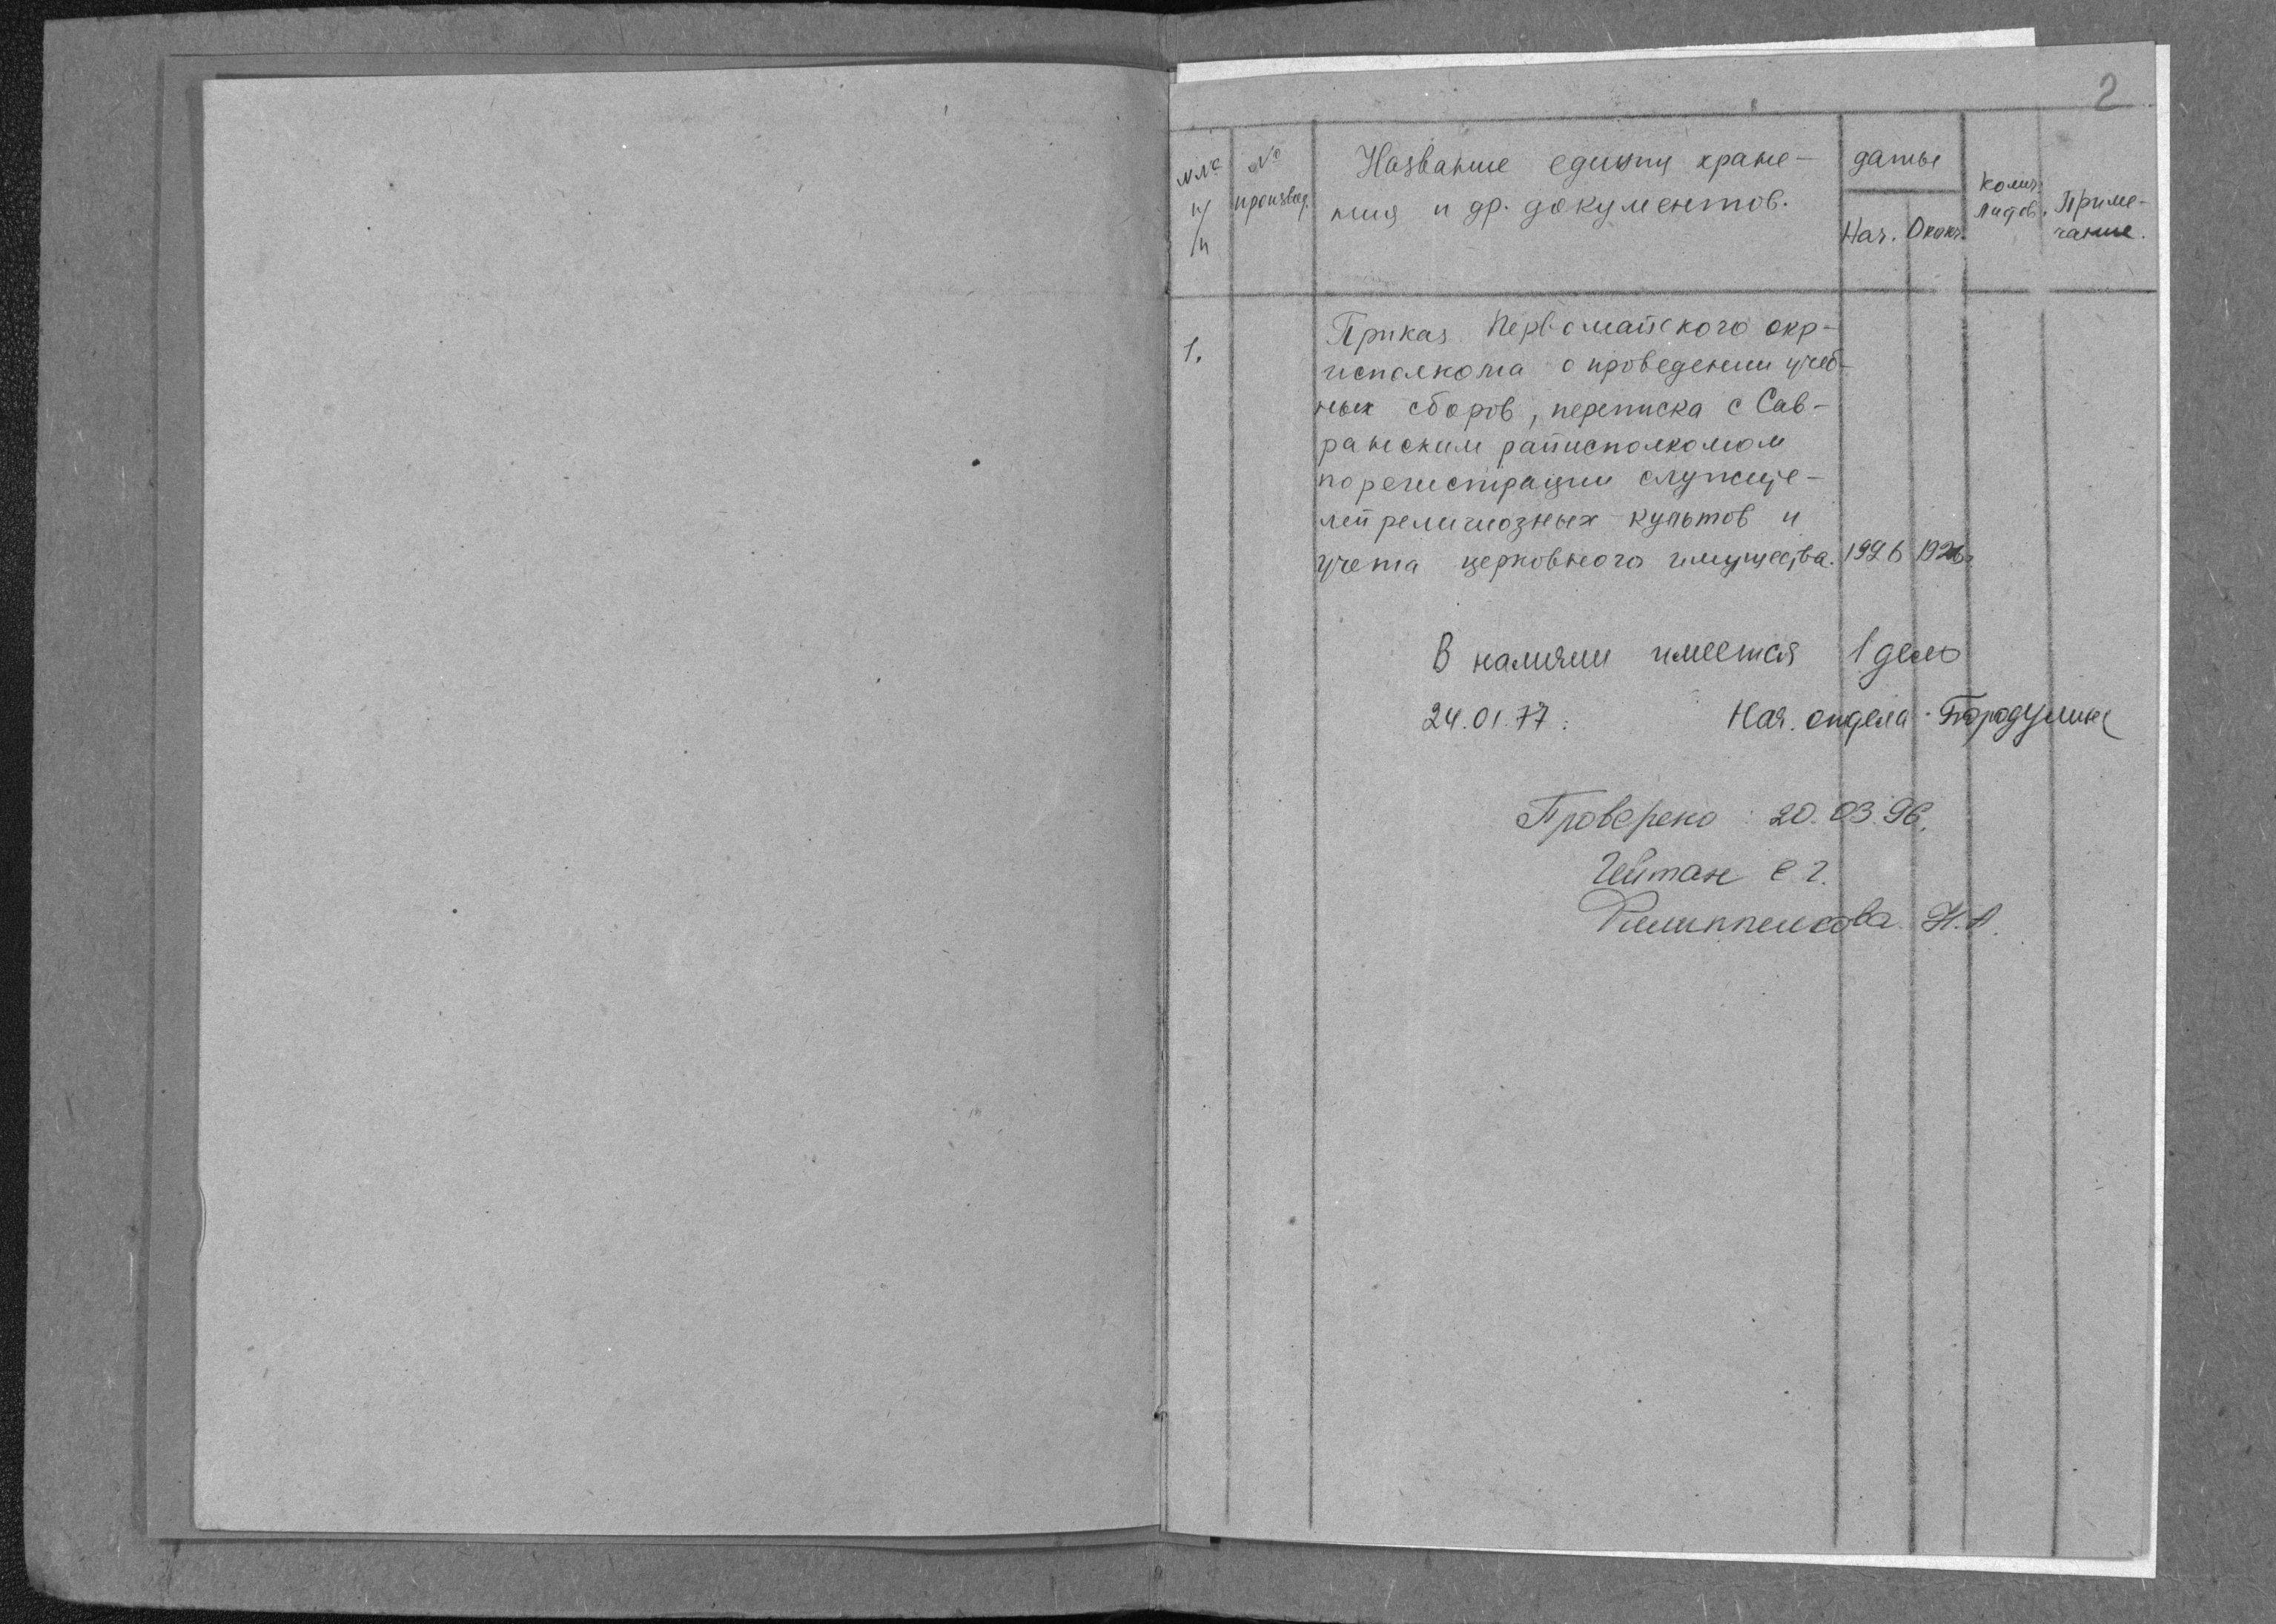 2
№№ п/п
№ производ.
Название единиц хране-
ния и др. документов.
даты
Нач. Оконч.
Колич. листов.
Приме-
чание.
1.
Приказ Первомайского окр-
исполкома о проведении учеб-
ных сборов, переписка с Сав-
ранским райисполкомом
по регистрации служите-
лей религиозных культов и
учета церковного имущества. 1926 1926г.
В наличии имеется 1 дело
24.01.77. Нач. отдела
Проверено: 20.03.96.
Н.А.